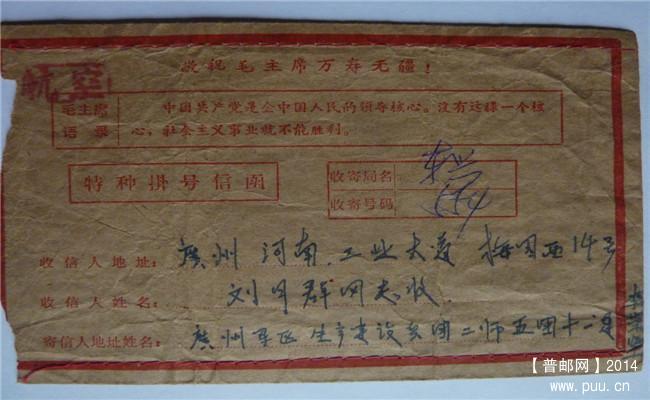 敬祝毛主席万寿无疆！
航空
毛主席语录
中国共产党是全中国人民的领导核心。没有这样一个核
心，社会主义事业就不能胜利。
特种掛号信函
收寄局名
收寄号码
收信人地址： 廣州 河南. 工业大道 梅园西14号
收信人姓名： 刘月群同志收.
寄信人地址姓名： 廣州军区生产建设兵团二师五团十一连
【普邮网】2014
www.puu.cn